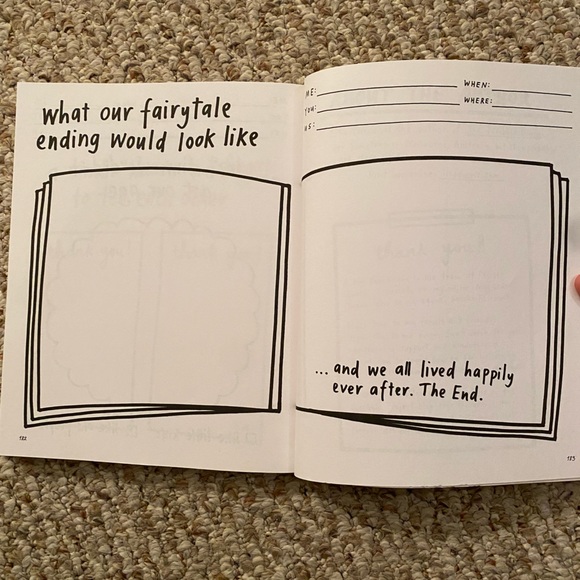 What our fairytale
ending would look like
122
ME:
WHEN:
YOU:
WHERE:
US:
... and we all lived happily
ever after. The End.
123